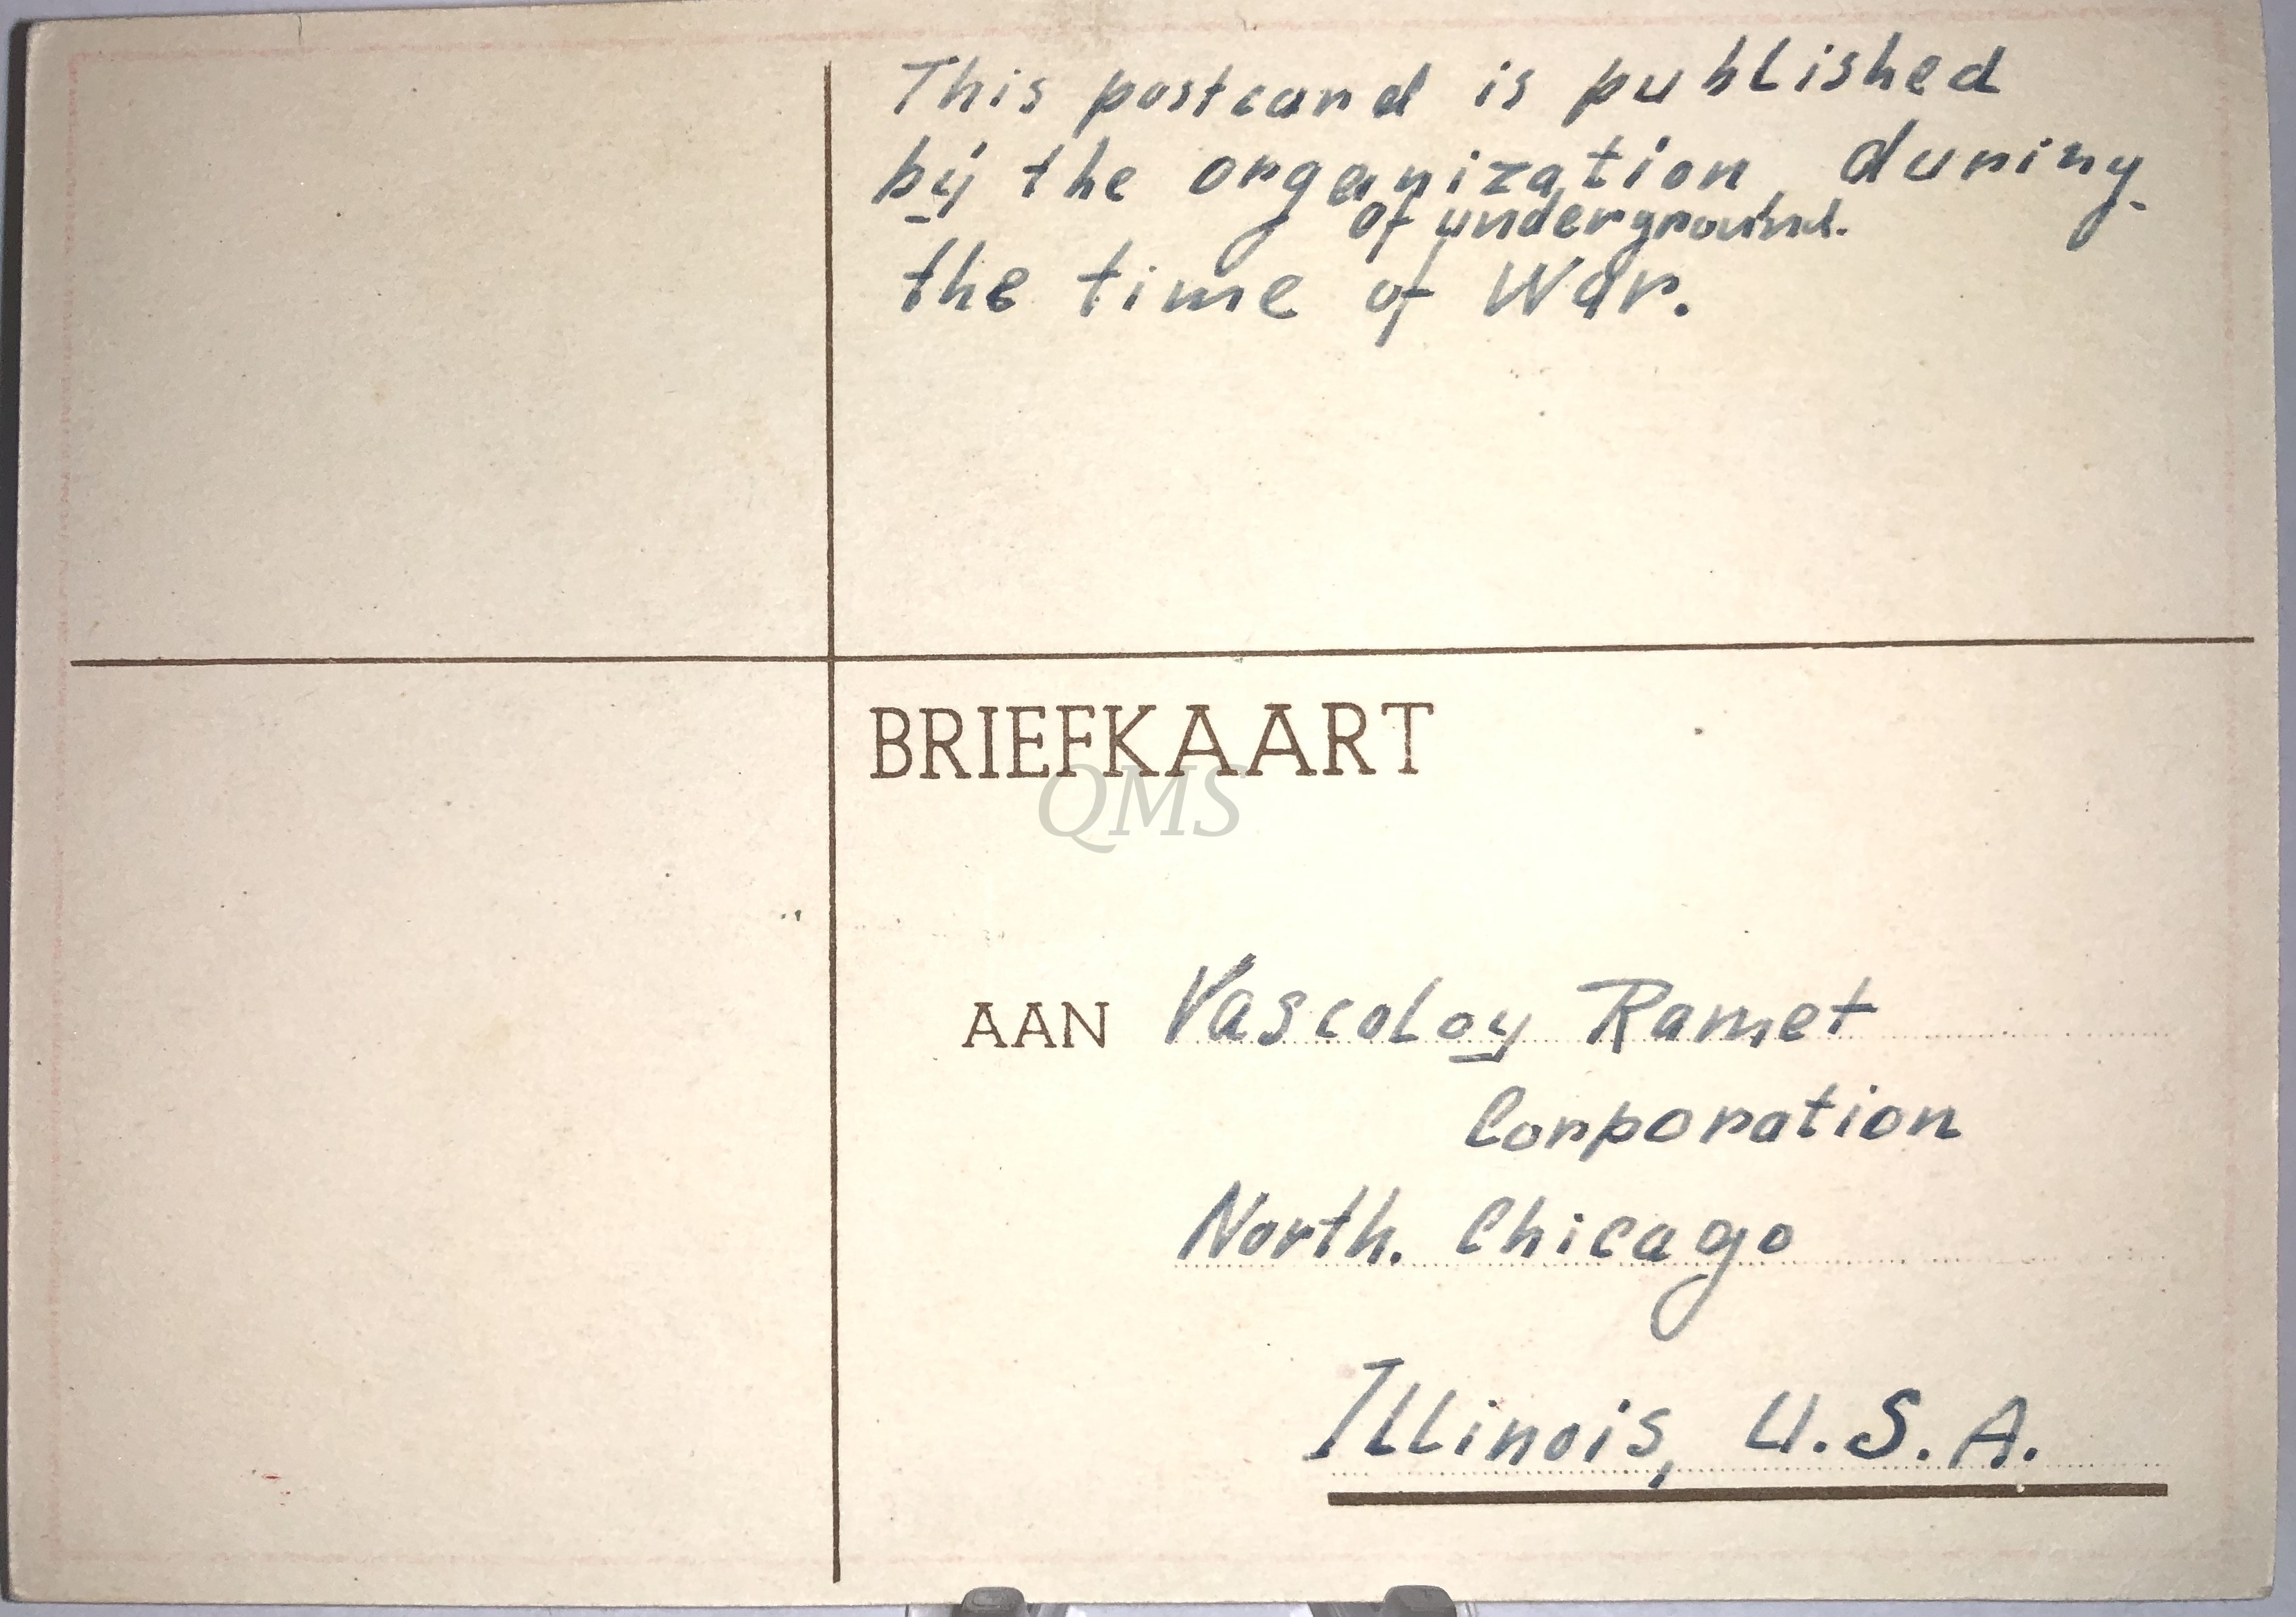 This postcard is published
by the organization, during
of underground.
the time of War.
BRIEFKAART
QMS
AAN Vascoloy Ramet
Corporation
North. Chicago
Illinois, U.S.A.